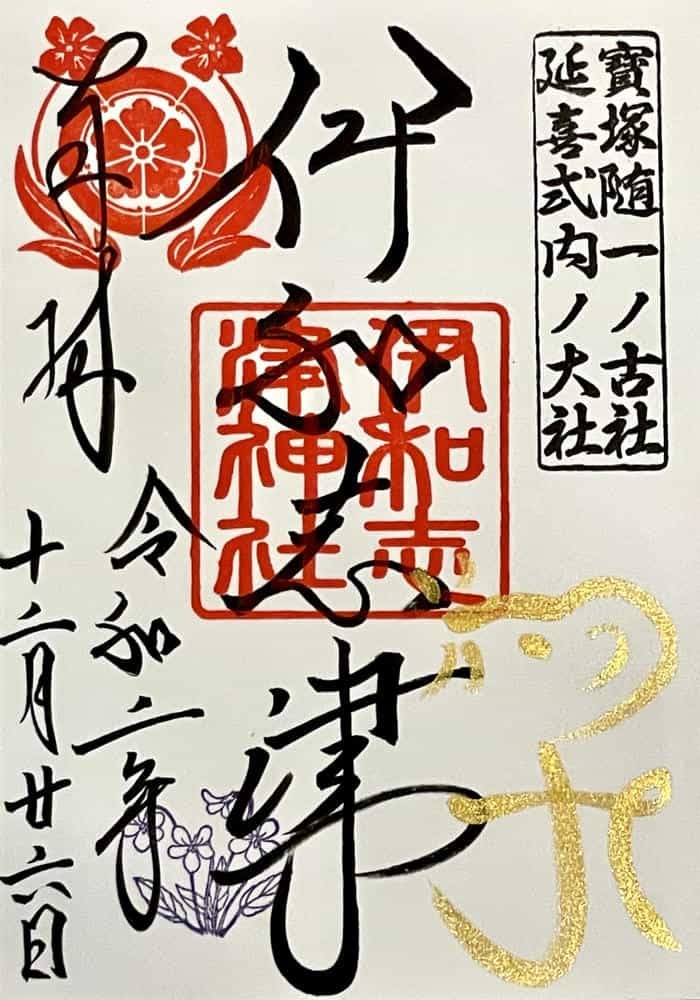 寶塚随一ノ古社
延喜式内ノ大社
伊和志津
伊和志
津神社
奉拝
令和二年
十二月廿六日